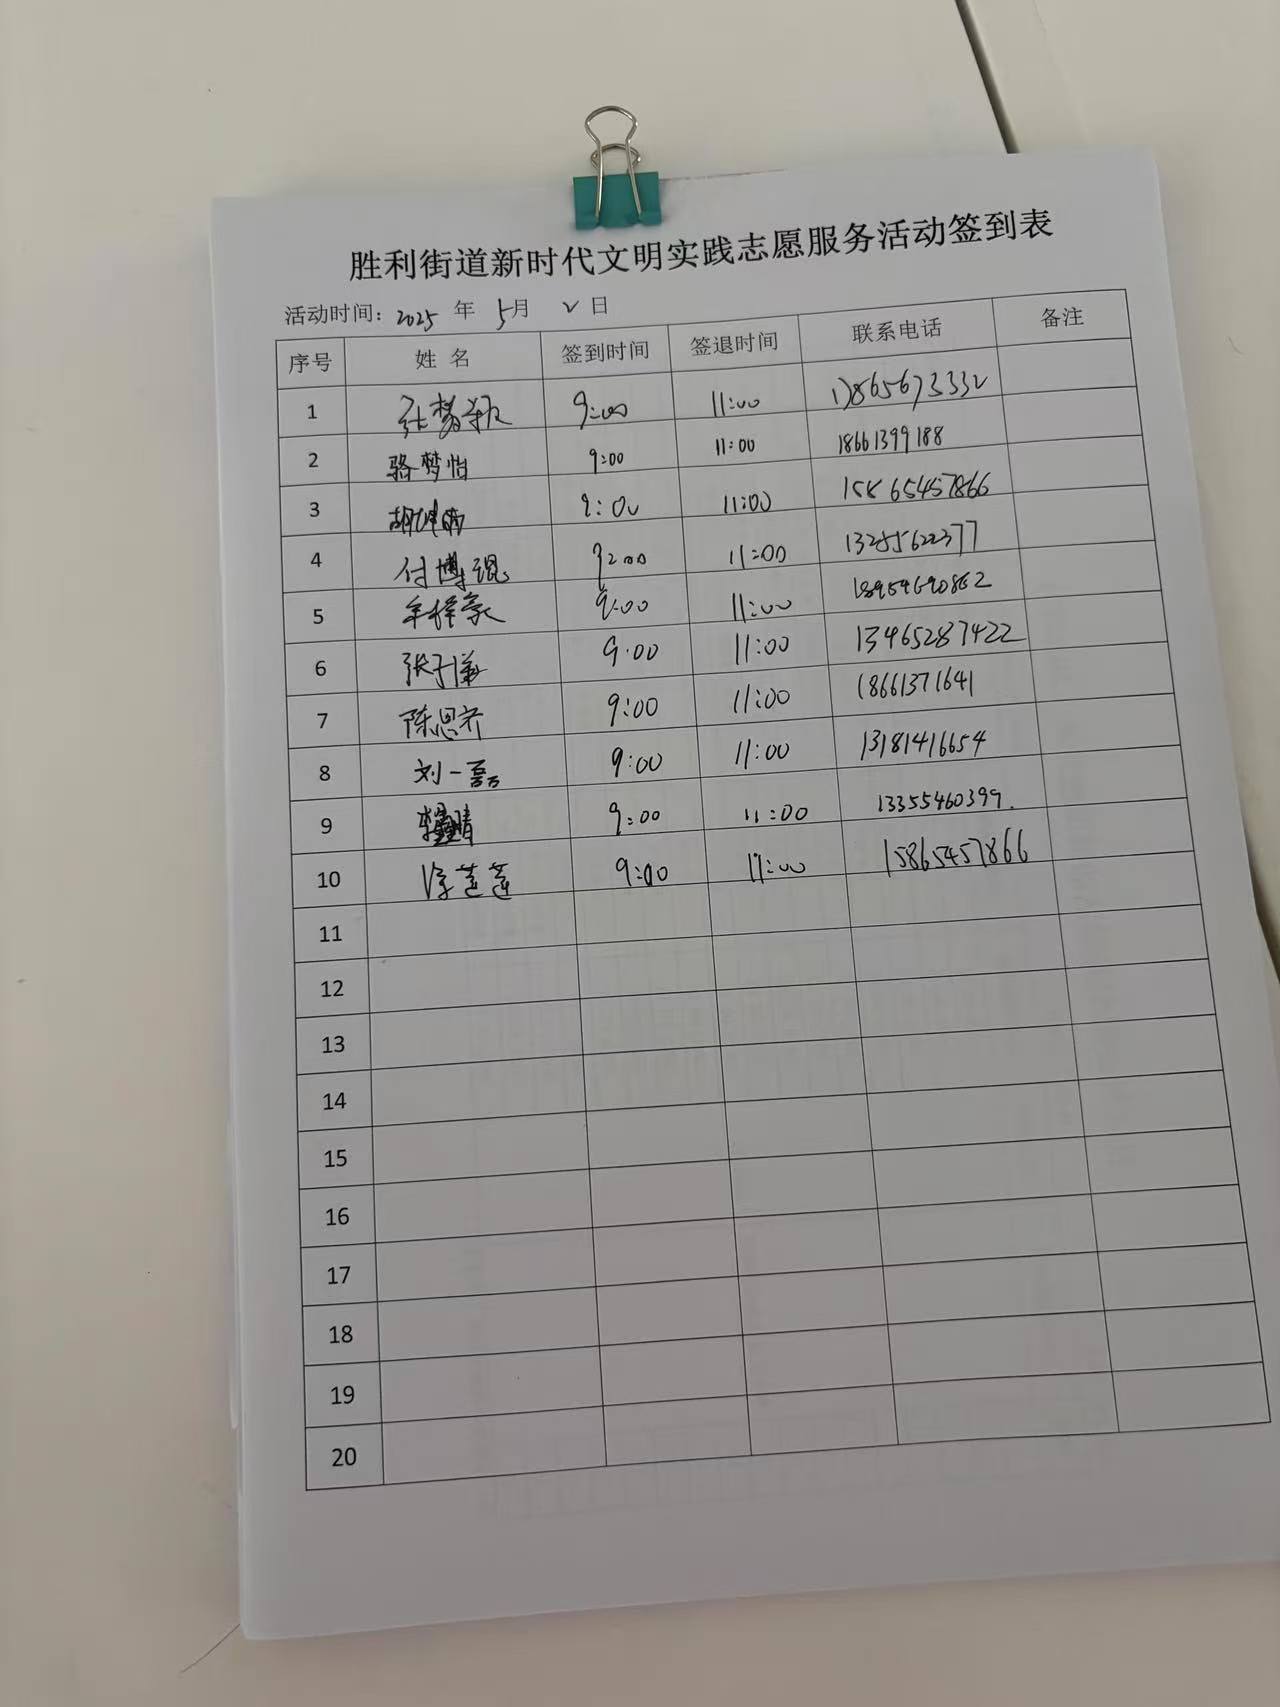 胜利街道新时代文明实践志愿服务活动签到表
活动时间：2025 年 5月 2 日
序号 姓 名 签到时间 签退时间 联系电话 备注
1 张梦颖 9:00 11:00 17865673332
2 骆梦怡 9:00 11:00 18661399188
3 9:00 11:00 15865457866
4 付博琨 9:00 11:00 13255622377
5 牟梓豪 9:00 11:00 13954690862
6 张子涵 9:00 11:00 13465287422
7 陈思齐 9:00 11:00 18661371641
8 刘一磊 9:00 11:00 13181416654
9 9:00 11:00 13355460399.
10 徐莲莲 9:00 11:00 15865457866
11
12
13
14
15
16
17
18
19
20